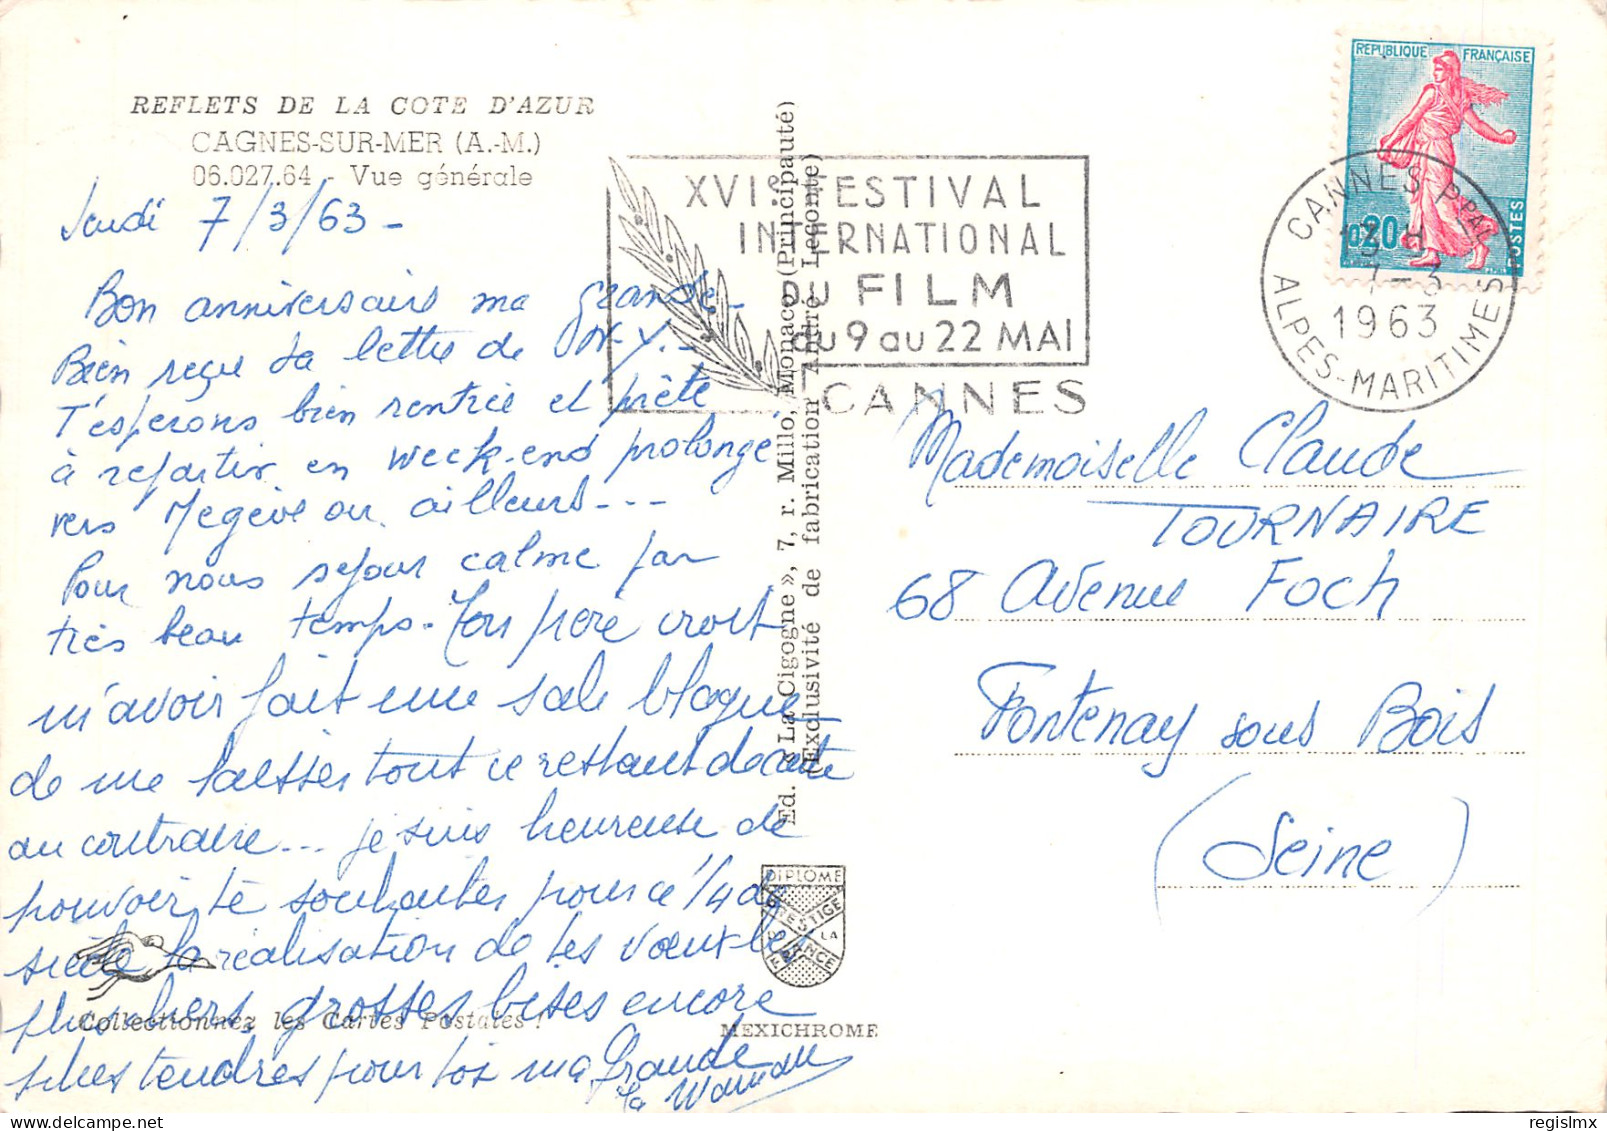 REFLETS DE LA COTE D'AZUR
CAGNES-SUR-MER (A.-M.)
06.027.64 - Vue générale
Jeudi 7/3/63 -
Bon anniversaire ma grande -
Bien reçu ta lettre de
T'espérons bien rentrée et prête
à repartir en week-end prolongé
vers Megève ou ailleurs - - -
Pour nous séjour calme par
très beau temps - Ton père croit
m'avoir fait une sale blague
de me laisser tout ce restant de carte
au contraire ... je suis heureuse de
pouvoir te souhaiter pour ce 1/4 de
siècle la réalisation de tes vœux les
plus chers, grosses bises encore
plus tendres pour toi ma Grande
ta Maman
Collectionnez les Cartes Postales !
Ed. « La Cigogne », 7, r. Millo, Monaco (Principauté)
(Exclusivité de fabrication André Leconte)
DIPLOME
PRESTIGE
DE LA
FRANCE
MEXICHROME
XVIe FESTIVAL
INTERNATIONAL
DU FILM
du 9 au 22 MAI
CANNES
REPUBLIQUE FRANÇAISE
0,20
POSTES
CANNES PPAL
13 H
7 - 3
1963
ALPES-MARITIMES
Mademoiselle Claude
TOURNAIRE
68 Avenue Foch
Fontenay sous Bois
(Seine)
regislmx
delcampe.net